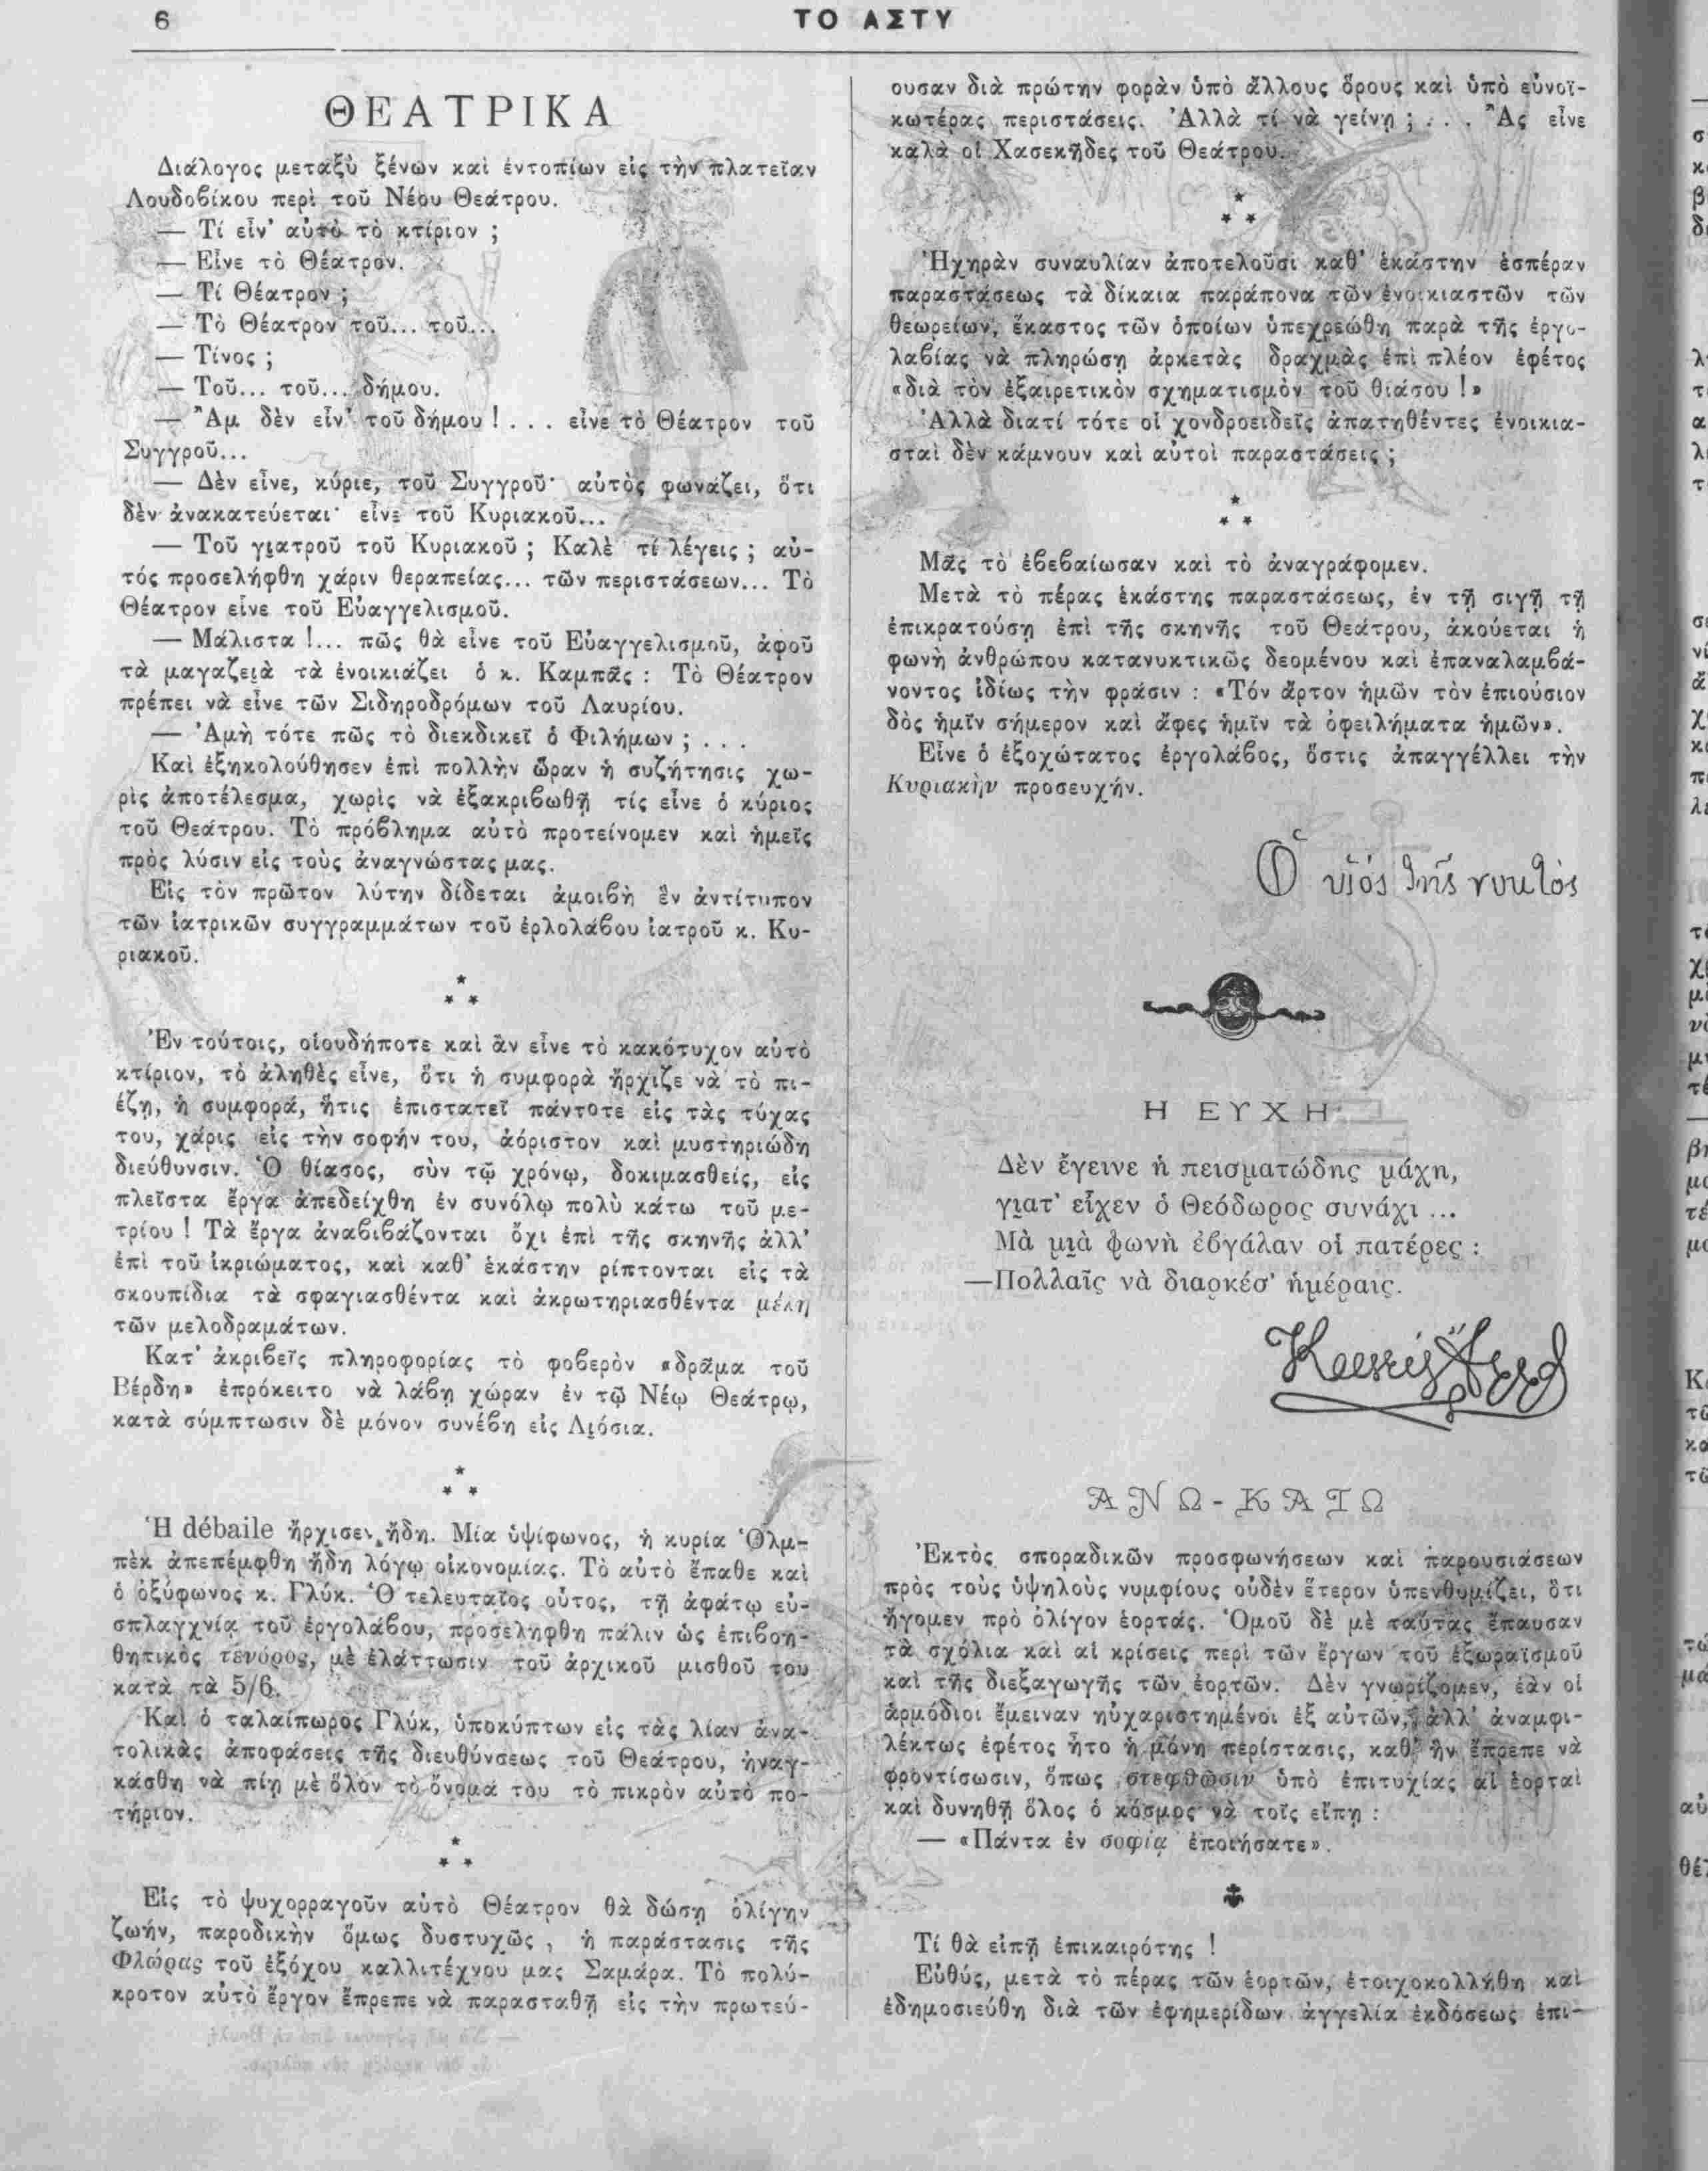 6
ΤΟ ΑΣΤΥ
ΘΕΑΤΡΙΚΑ
Διάλογος μεταξὺ ξένων καὶ ἐντοπίων εἰς τὴν πλατεῖαν
Λουδοβίκου περὶ τοῦ Νέου Θεάτρου.
— Τί εἶν' αὐτὸ τὸ κτίριον ;
— Εἶνε τὸ Θέατρον.
— Τί Θέατρον ;
— Τὸ Θέατρον τοῦ... τοῦ...
— Τίνος ;
— Τοῦ... τοῦ... δήμου.
— Ἂμ δὲν εἶν' τοῦ δήμου ! . . . εἶνε τὸ Θέατρον τοῦ
Συγγροῦ...
— Δὲν εἶνε, κύριε, τοῦ Συγγροῦ· αὐτὸς φωνάζει, ὅτι
δὲν ἀνακατεύεται· εἶνε τοῦ Κυριακοῦ...
— Τοῦ γιατροῦ τοῦ Κυριακοῦ ; Καλὲ τί λέγεις ; αὐ-
τός προσελήφθη χάριν θεραπείας... τῶν περιστάσεων... Τὸ
Θέατρον εἶνε τοῦ Εὐαγγελισμοῦ.
— Μάλιστα !... πῶς θὰ εἶνε τοῦ Εὐαγγελισμοῦ, ἀφοῦ
τὰ μαγαζειὰ τὰ ἐνοικιάζει ὁ κ. Καμπᾶς : Τὸ Θέατρον
πρέπει νὰ εἶνε τῶν Σιδηροδρόμων τοῦ Λαυρίου.
— Ἀμὴ τότε πῶς τὸ διεκδικεῖ ὁ Φιλήμων ; . . .
Καὶ ἐξηκολούθησεν ἐπὶ πολλὴν ὥραν ἡ συζήτησις χω-
ρὶς ἀποτέλεσμα, χωρὶς νὰ ἐξακριβωθῇ τίς εἶνε ὁ κύριος
τοῦ Θεάτρου. Τὸ πρόβλημα αὐτὸ προτείνομεν καὶ ἡμεῖς
πρὸς λύσιν εἰς τοὺς ἀναγνώστας μας.
Εἰς τὸν πρῶτον λύτην δίδεται ἀμοιβὴ ἓν ἀντίτυπον
τῶν ἰατρικῶν συγγραμμάτων τοῦ ἐρλολάβου ἰατροῦ κ. Κυ-
ριακοῦ.
* * *
Ἐν τούτοις, οἱουδήποτε καὶ ἂν εἶνε τὸ κακότυχον αὐτὸ
κτίριον, τὸ ἀληθὲς εἶνε, ὅτι ἡ συμφορὰ ἤρχιζε νὰ τὸ πι-
έζῃ, ἡ συμφορά, ἥτις ἐπιστατεῖ πάντοτε εἰς τὰς τύχας
του, χάρις εἰς τὴν σοφήν του, ἀόριστον καὶ μυστηριώδη
διεύθυνσιν. Ὁ θίασος, σὺν τῷ χρόνῳ, δοκιμασθείς, εἰς
πλεῖστα ἔργα ἀπεδείχθη ἐν συνόλῳ πολὺ κάτω τοῦ με-
τρίου ! Τὰ ἔργα ἀναβιβάζονται ὄχι ἐπὶ τῆς σκηνῆς ἀλλ'
ἐπὶ τοῦ ἰκριώματος, καὶ καθ' ἑκάστην ρίπτονται εἰς τὰ
σκουπίδια τὰ σφαγιασθέντα καὶ ἀκρωτηριασθέντα μέλη
τῶν μελοδραμάτων.
Κατ' ἀκριβεῖς πληροφορίας τὸ φοβερὸν «δρᾶμα τοῦ
Βέρδη» ἐπρόκειτο νὰ λάβῃ χώραν ἐν τῷ Νέῳ Θεάτρῳ,
κατὰ σύμπτωσιν δὲ μόνον συνέβη εἰς Λιόσια.
* * *
Ἡ débaile ἤρχισεν ἤδη. Μία ὑψίφωνος, ἡ κυρία Ὁλμ-
πὲκ ἀπεπέμφθη ἤδη λόγῳ οἰκονομίας. Τὸ αὐτὸ ἔπαθε καὶ
ὁ ὀξύφωνος κ. Γλύκ. Ὁ τελευταῖος οὗτος, τῇ ἀφάτῳ εὐ-
σπλαγχνίᾳ τοῦ ἐργολάβου, προσελήφθη πάλιν ὡς ἐπιβοη-
θητικὸς τενόρος, μὲ ἐλάττωσιν τοῦ ἀρχικοῦ μισθοῦ του
κατὰ τὰ 5/6.
Καὶ ὁ ταλαίπωρος Γλύκ, ὑποκύπτων εἰς τὰς λίαν ἀνα-
τολικὰς ἀποφάσεις τῆς διευθύνσεως τοῦ Θεάτρου, ἠναγ-
κάσθη νὰ πίῃ μὲ ὅλον τὸ ὄνομά του τὸ πικρὸν αὐτὸ πο-
τήριον.
* * *
Εἰς τὸ ψυχορραγοῦν αὐτὸ Θέατρον θὰ δώσῃ ὀλίγην
ζωήν, παροδικὴν ὅμως δυστυχῶς, ἡ παράστασις τῆς
Φλώρας τοῦ ἐξόχου καλλιτέχνου μας Σαμάρα. Τὸ πολύ-
κροτον αὐτὸ ἔργον ἔπρεπε νὰ παρασταθῇ εἰς τὴν πρωτεύ-
ουσαν διὰ πρώτην φορὰν ὑπὸ ἄλλους ὅρους καὶ ὑπὸ εὐνοϊ-
κωτέρας περιστάσεις. Ἀλλὰ τί νὰ γείνῃ ; . . . Ἂς εἶνε
καλὰ οἱ Χασεκῆδες τοῦ Θεάτρου.
* * *
Ἠχηρὰν συναυλίαν ἀποτελοῦσι καθ' ἑκάστην ἑσπέραν
παραστάσεως τὰ δίκαια παράπονα τῶν ἐνοικιαστῶν τῶν
θεωρείων, ἕκαστος τῶν ὁποίων ὑπεχρεώθη παρὰ τῆς ἐργο-
λαβίας νὰ πληρώσῃ ἀρκετὰς δραχμὰς ἐπὶ πλέον ἐφέτος
«διὰ τὸν ἐξαιρετικὸν σχηματισμὸν τοῦ θιάσου !»
Ἀλλὰ διατί τότε οἱ χονδροειδεῖς ἀπατηθέντες ἐνοικια-
σταὶ δὲν κάμνουν καὶ αὐτοὶ παραστάσεις ;
* * *
Μᾶς τὸ ἐβεβαίωσαν καὶ τὸ ἀναγράφομεν.
Μετὰ τὸ πέρας ἑκάστης παραστάσεως, ἐν τῇ σιγῇ τῇ
ἐπικρατούσῃ ἐπὶ τῆς σκηνῆς τοῦ Θεάτρου, ἀκούεται ἡ
φωνὴ ἀνθρώπου κατανυκτικῶς δεομένου καὶ ἐπαναλαμβά-
νοντος ἰδίως τὴν φράσιν : «Τόν ἄρτον ἡμῶν τὸν ἐπιούσιον
δὸς ἡμῖν σήμερον καὶ ἄφες ἡμῖν τὰ ὀφειλήματα ἡμῶν».
Εἶνε ὁ ἐξοχώτατος ἐργολάβος, ὅστις ἀπαγγέλλει τὴν
Κυριακὴν προσευχήν.
Ὁ υἱὸς τῆς νυκτὸς
Η ΕΥΧΗ
Δὲν ἔγεινε ἡ πεισματώδης μάχη,
γιατ' εἶχεν ὁ Θεόδωρος συνάχι ...
Μὰ μιὰ φωνὴ ἐβγάλαν οἱ πατέρες :
—Πολλαῖς νὰ διαρκέσ' ἡμέραις.
ΑΝΩ-ΚΑΤΩ
Ἐκτὸς σποραδικῶν προσφωνήσεων καὶ παρουσιάσεων
πρὸς τοὺς ὑψηλοὺς νυμφίους οὐδὲν ἕτερον ὑπενθυμίζει, ὅτι
ἤγομεν πρὸ ὀλίγον ἑορτάς. Ὁμοῦ δὲ μὲ ταύτας ἔπαυσαν
τὰ σχόλια καὶ αἱ κρίσεις περὶ τῶν ἔργων τοῦ ἐξωραϊσμοῦ
καὶ τῆς διεξαγωγῆς τῶν ἑορτῶν. Δὲν γνωρίζομεν, ἐὰν οἱ
ἁρμόδιοι ἔμειναν ηὐχαριστημένοι ἐξ αὐτῶν, ἀλλ' ἀναμφι-
λέκτως ἐφέτος ἦτο ἡ μόνη περίστασις, καθ' ἣν ἔπρεπε νὰ
φροντίσωσιν, ὅπως στεφθῶσιν ὑπὸ ἐπιτυχίας αἱ ἑορταὶ
καὶ δυνηθῇ ὅλος ὁ κόσμος νὰ τοῖς εἴπῃ :
— «Πάντα ἐν σοφίᾳ ἐποιήσατε».
Τί θὰ εἰπῇ ἐπικαιρότης !
Εὐθύς, μετὰ τὸ πέρας τῶν ἑορτῶν, ἐτοιχοκολλήθη καὶ
ἐδημοσιεύθη διὰ τῶν ἐφημερίδων ἀγγελία ἐκδόσεως ἐπι-